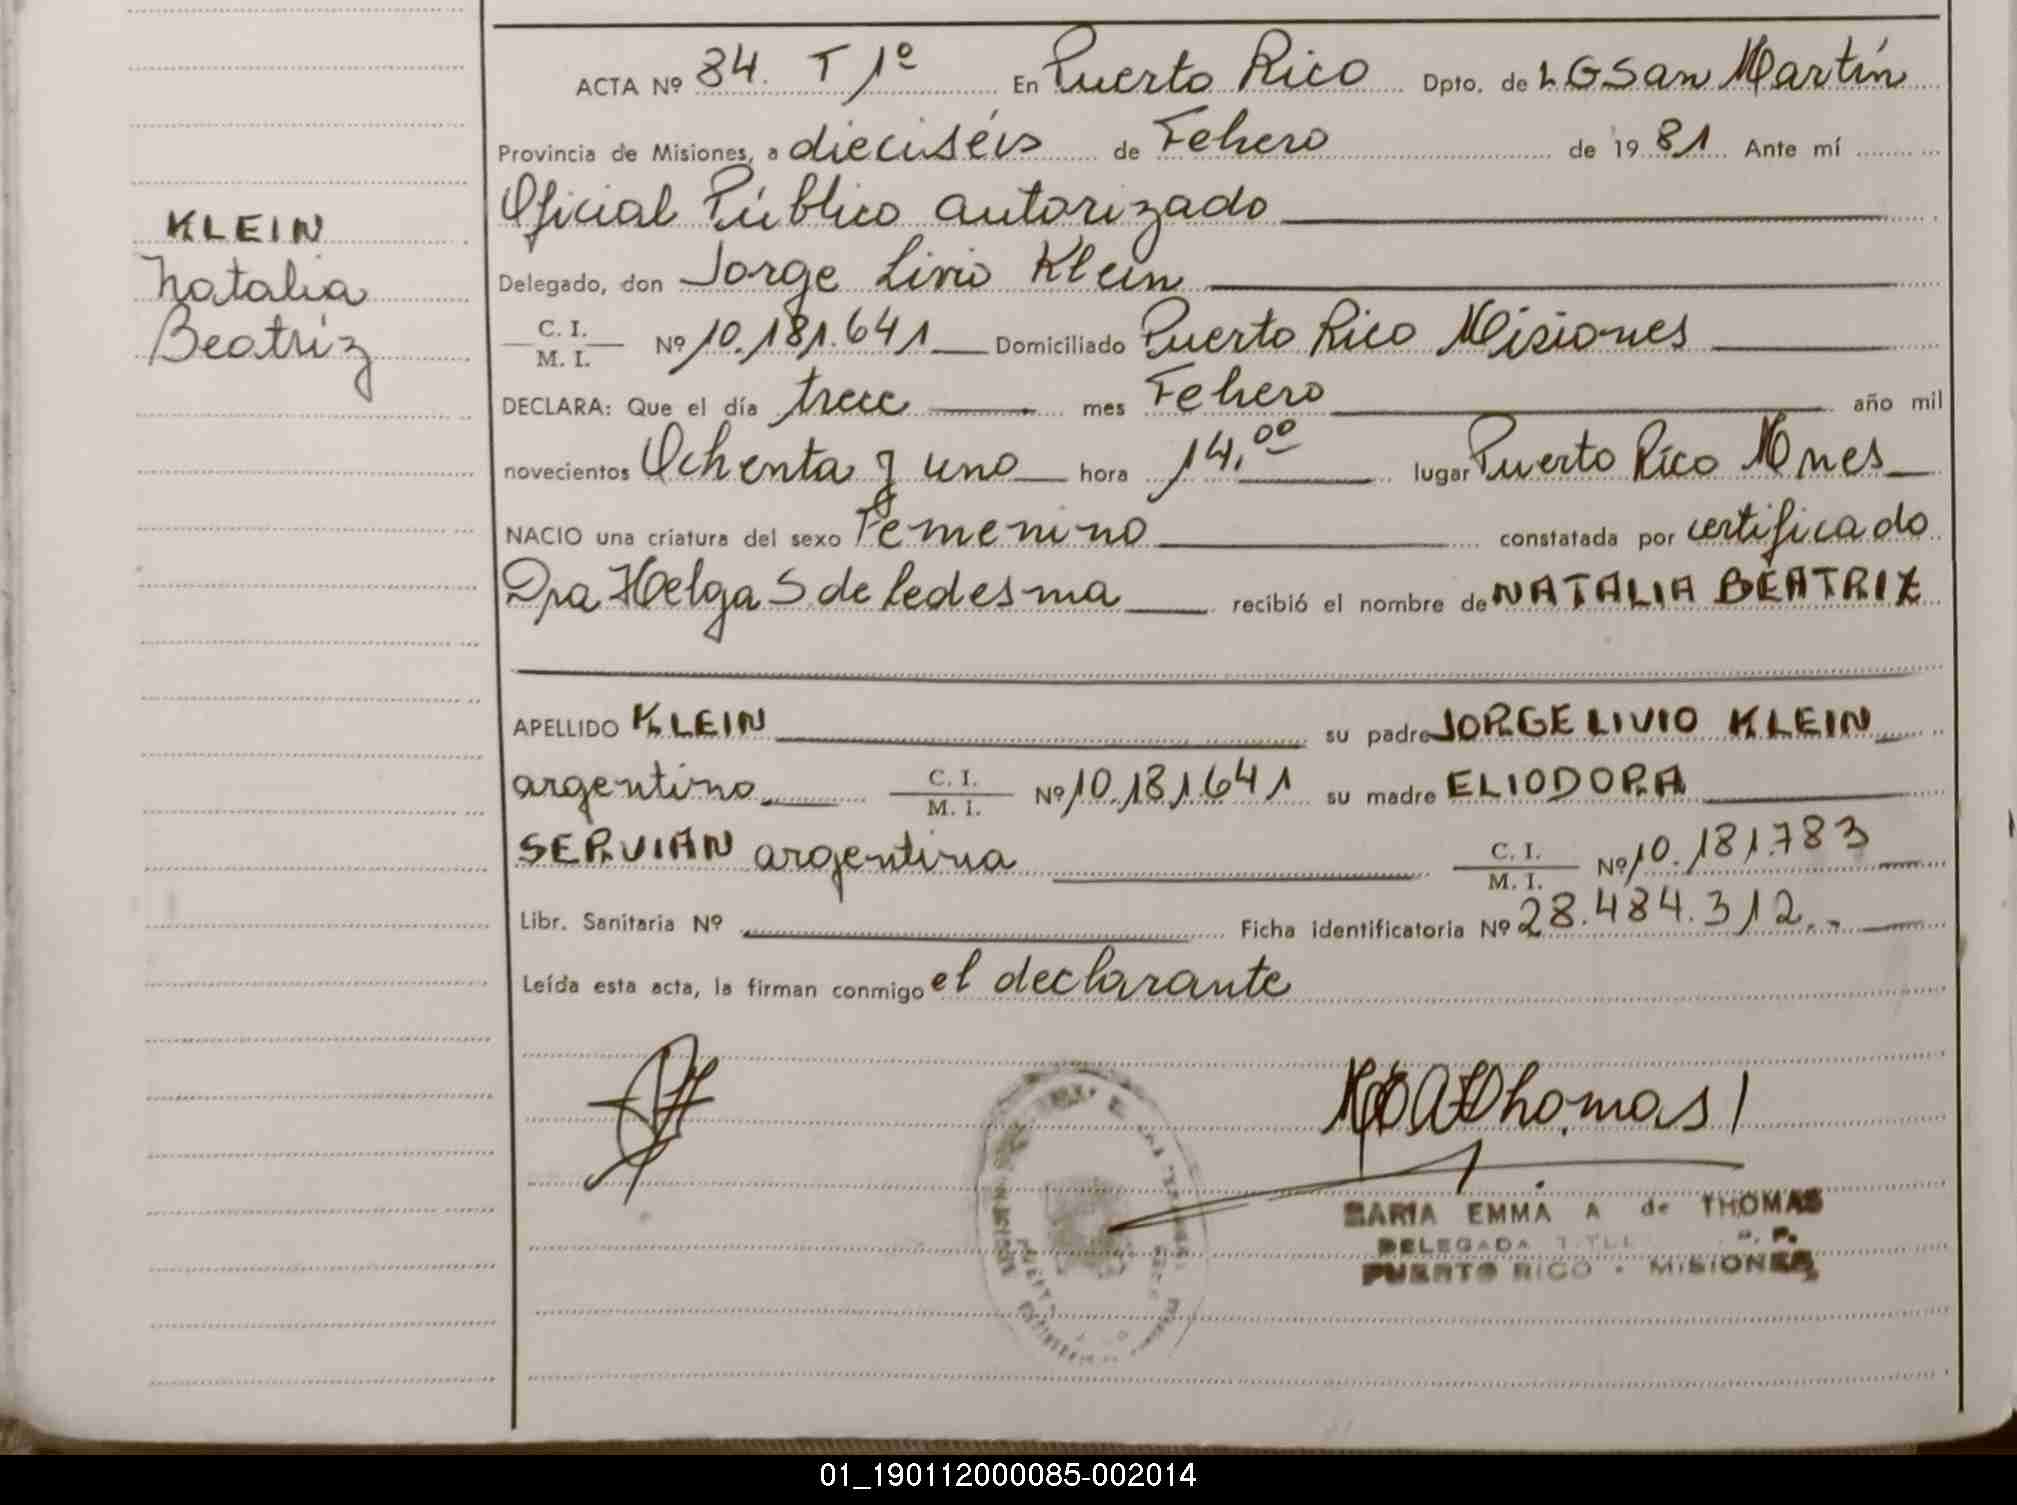 ACTA Nº 84. T 1º En Puerto Rico Dpto. de LGSan Martín
Provincia de Misiones, a dieciséis de Febrero de 1981 Ante mí
Oficial Público autorizado
KLEIN
Natalia
Beatriz
Delegado, don Jorge Livio Klein
C. I.
M. I. Nº 10.181.641 Domiciliado Puerto Rico Misiones
DECLARA: Que el día trece mes Febrero año mil
novecientos Ochenta y uno hora 14,00 lugar Puerto Rico Mnes
NACIO una criatura del sexo Femenino constatada por certificado
Dra Helga S. de Ledesma recibió el nombre de NATALIA BEATRIZ
APELLIDO KLEIN su padre JORGE LIVIO KLEIN
argentino C. I. M. I. Nº 10.181.641 su madre ELIODORA
SERVIAN argentina C. I. M. I. Nº 10.181.783
Libr. Sanitaria Nº Ficha identificatoria Nº 28.484.312.-
Leída esta acta, la firman conmigo el declarante
Thomas
MARIA EMMA A de THOMAS
DELEGADA
PUERTO RICO - MISIONES
01_190112000085-002014